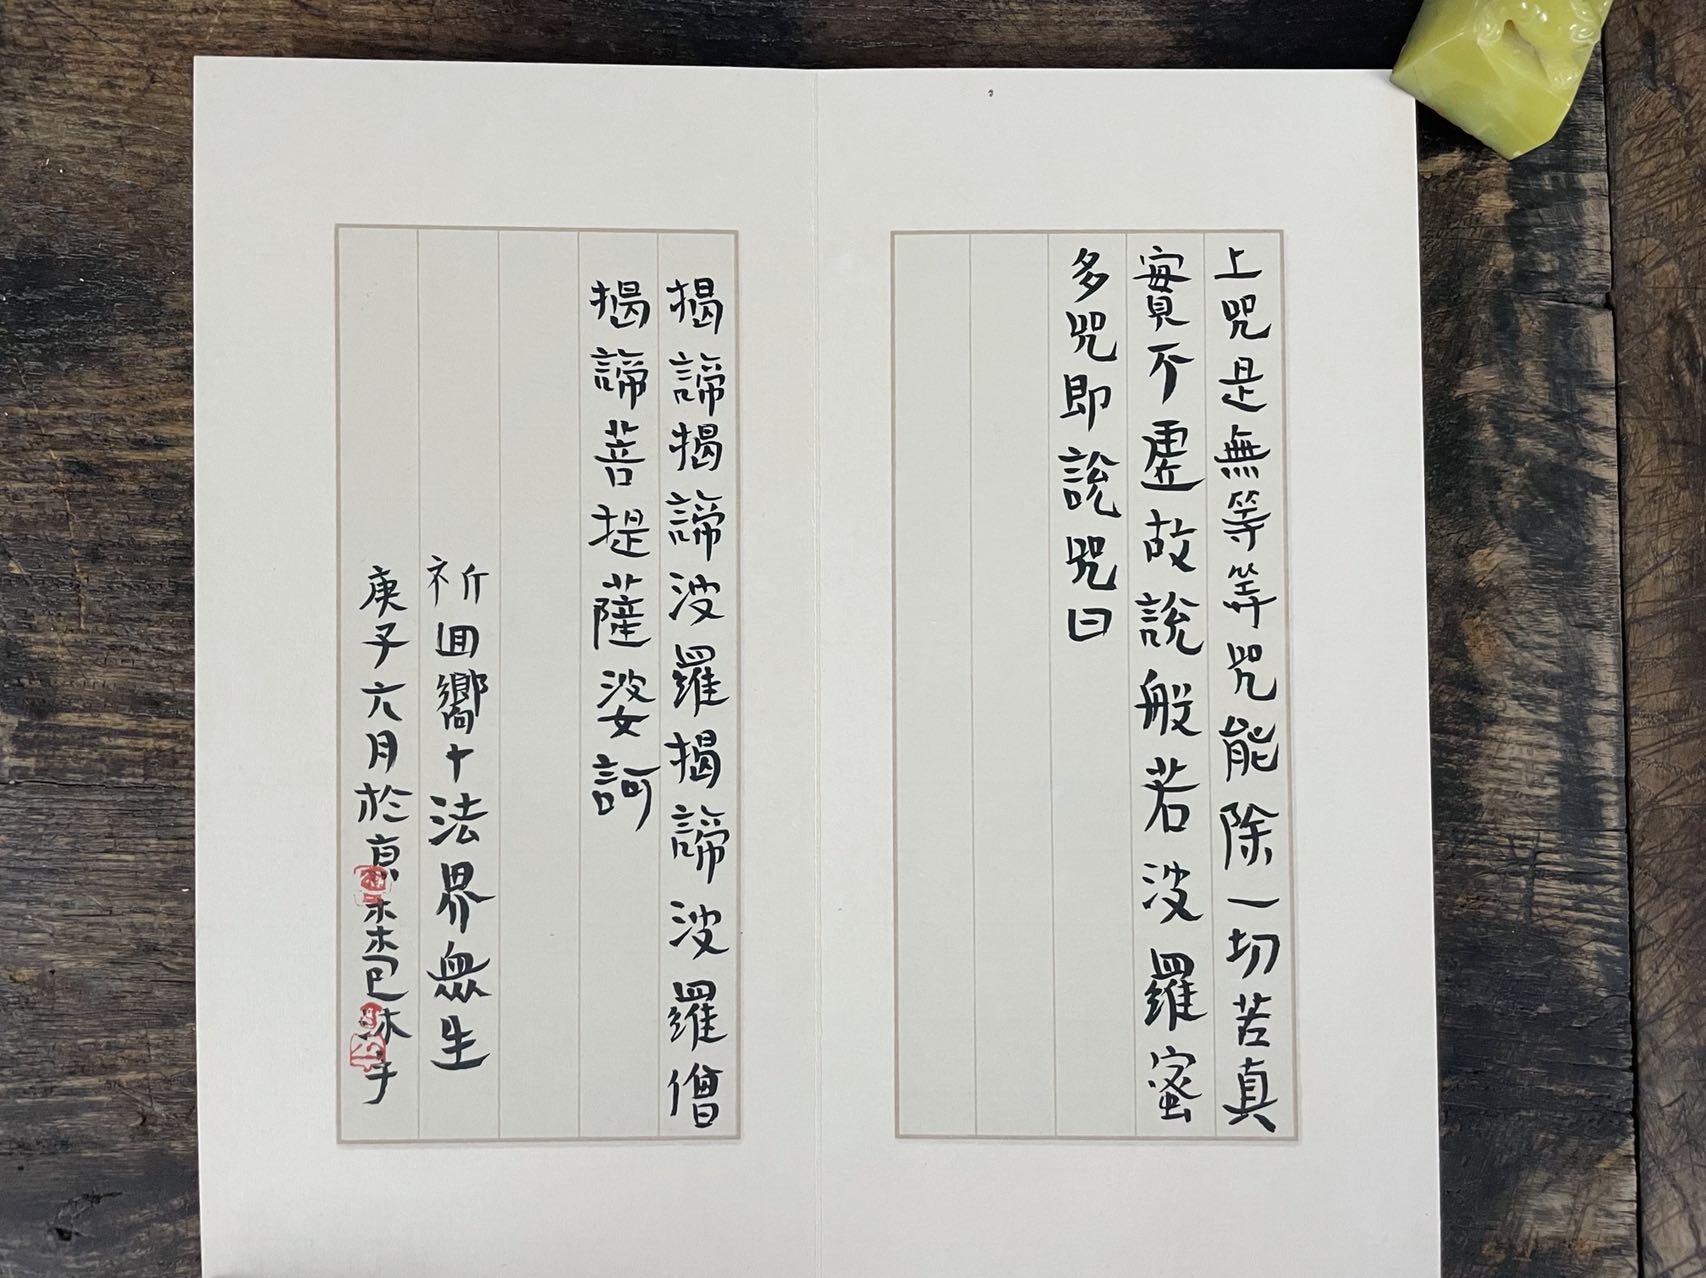 上咒是無等等咒能除一切苦真
實不虛故說般若波羅蜜
多咒即說咒曰
揭諦揭諦波羅揭諦波羅僧
揭諦菩提薩婆訶
祈回嚮十法界眾生
庚子六月於京